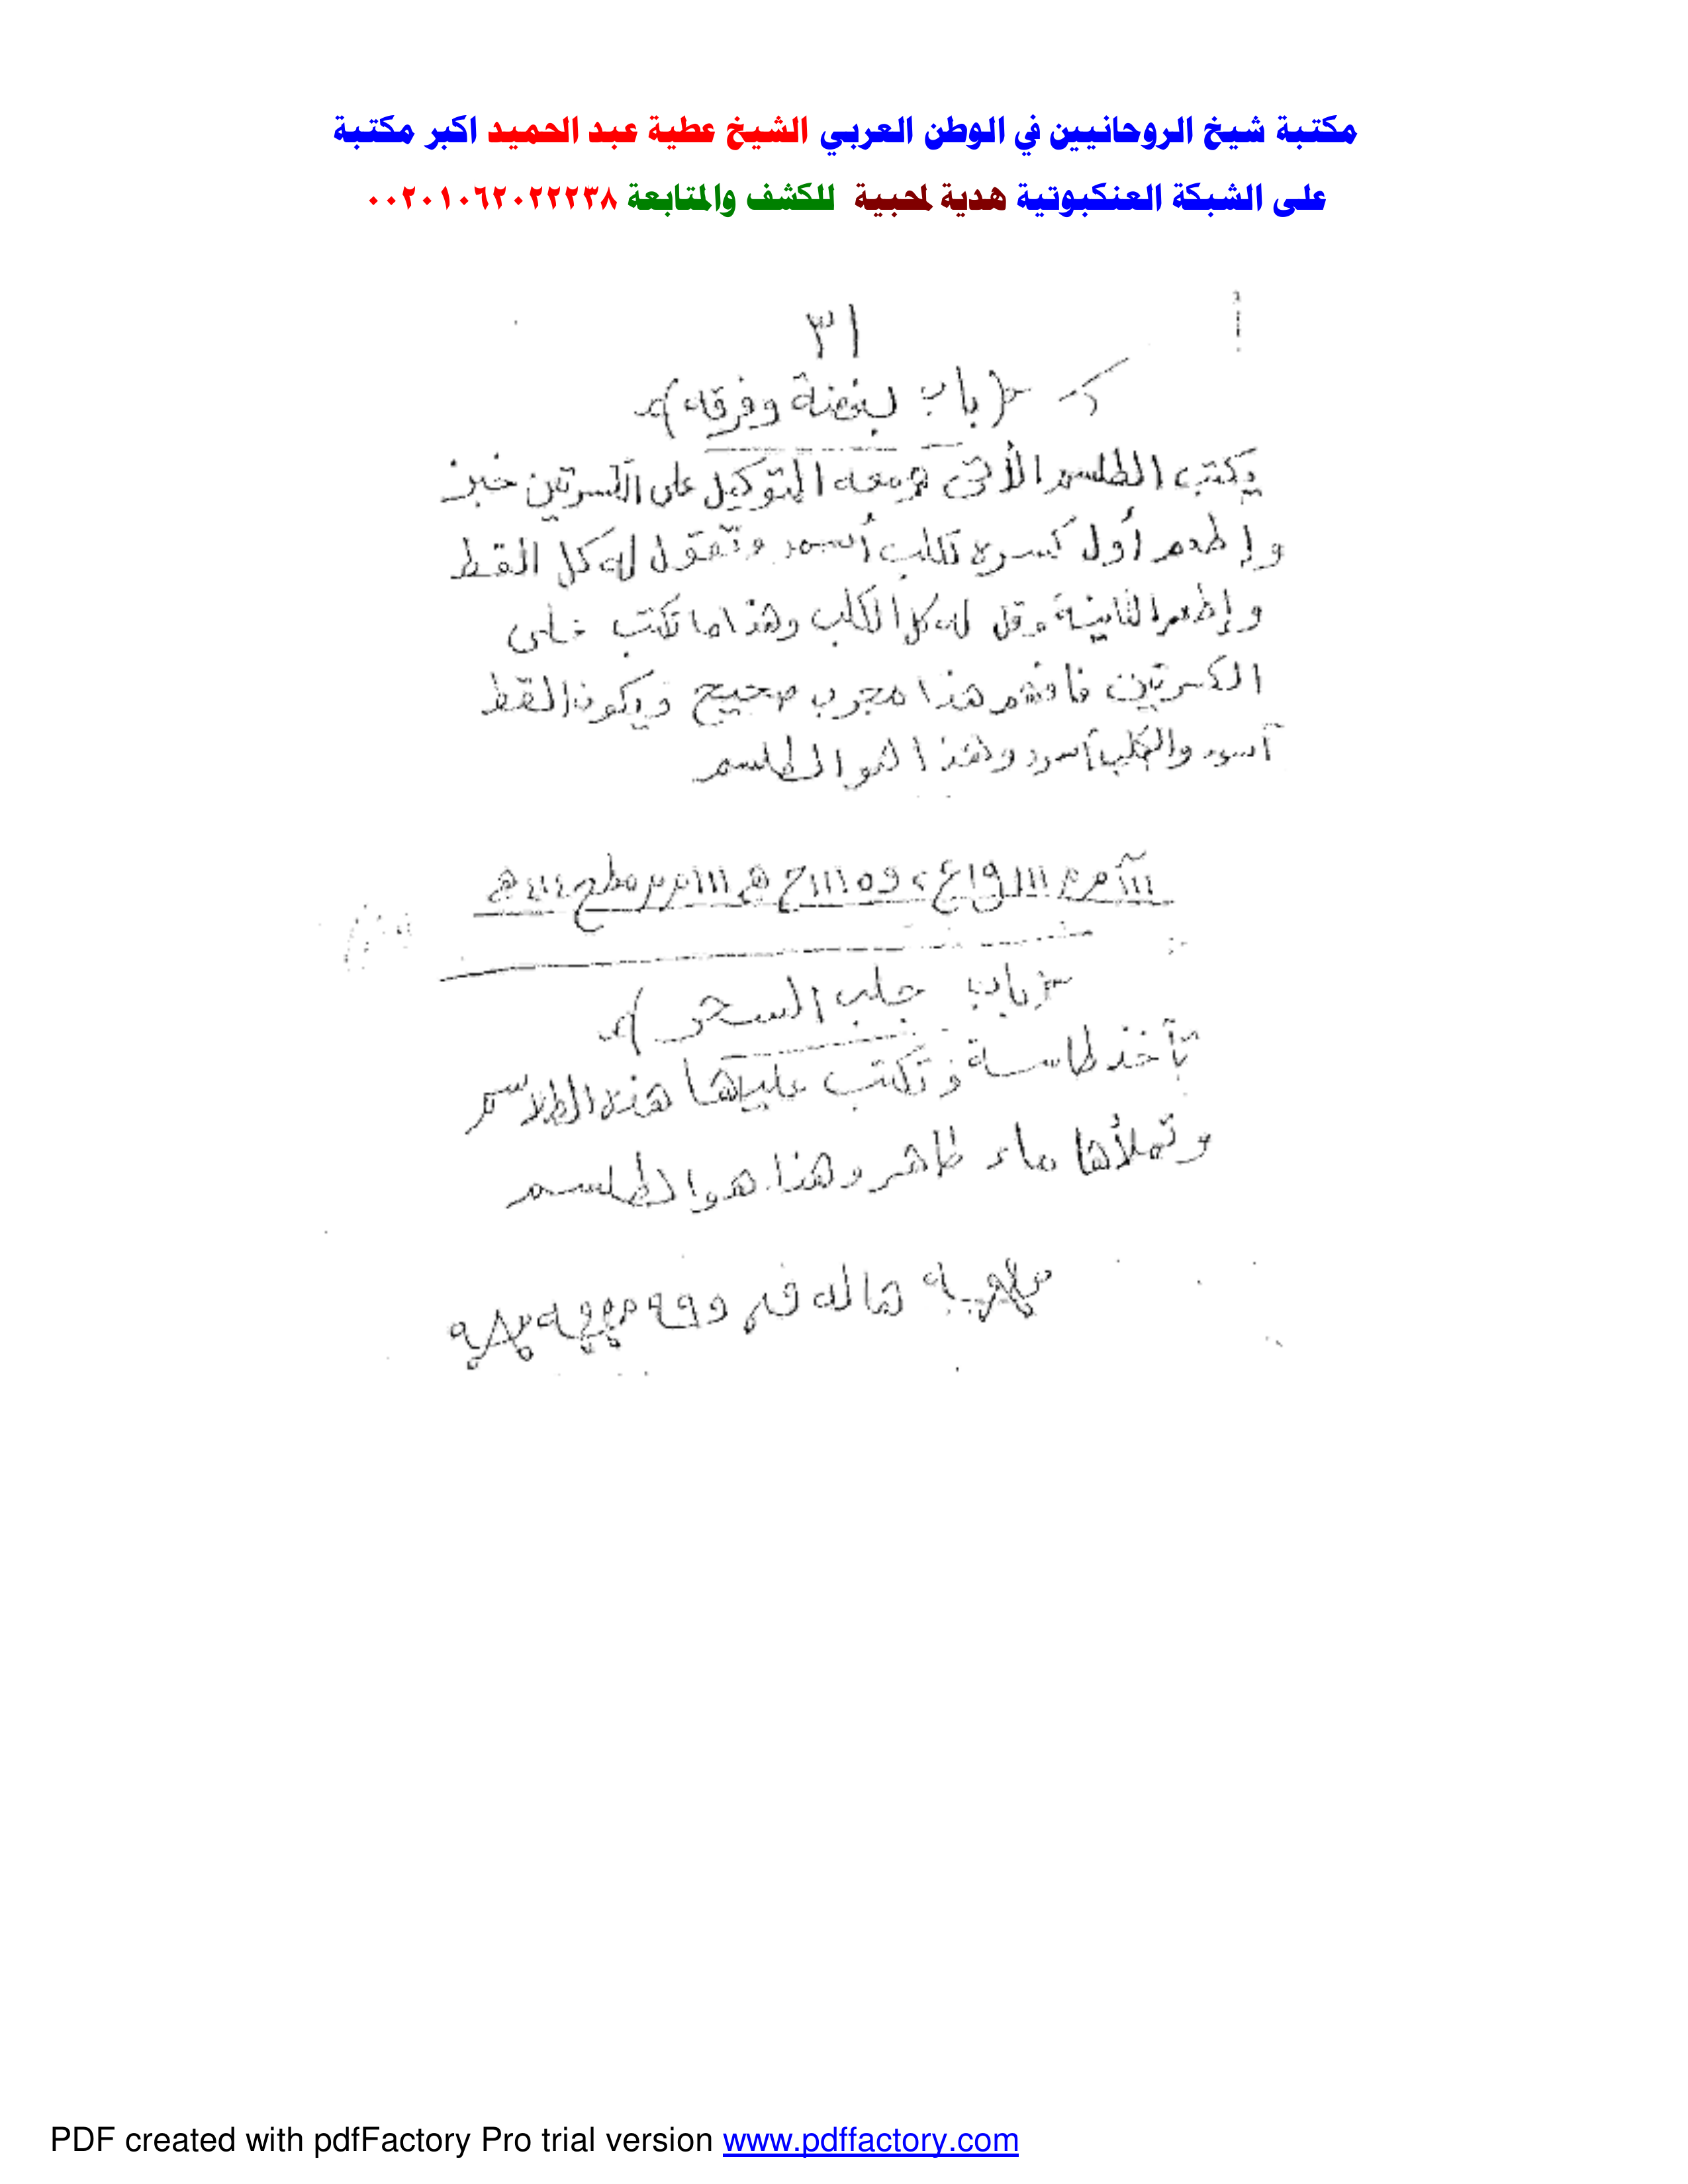 مكتبة شيخ الروحانيين في الوطن العربي الشيخ عطية عبد الحميد اكبر مكتبة
على الشبكة العنكبوتية هدية لمحبية للكشف والمتابعة ٠٠٢٠١٠٦٢٠٢٢٢٣٨
٣١
(باب لبغضة وفرقه)
يكتب الطلسم الأتى ومعه التوكيل على الكسرتين خبز
وإطعم أول كسره لكلب أسود وتقول له كل القط
وإطعم الثانية وقل له كل الكلب وهذا ما تكتب على
الكسرتين فافهم هذا مجرب صحيح ويكون القط
آسود والكلب آسود وهذا هو الطلسم
(باب جلب السحر)
تآخذ طاسة وتكتب عليها هذه الطلاسم
وتملأها ماء طاهر وهذا هو الطلسم
PDF created with pdfFactory Pro trial version www.pdffactory.com